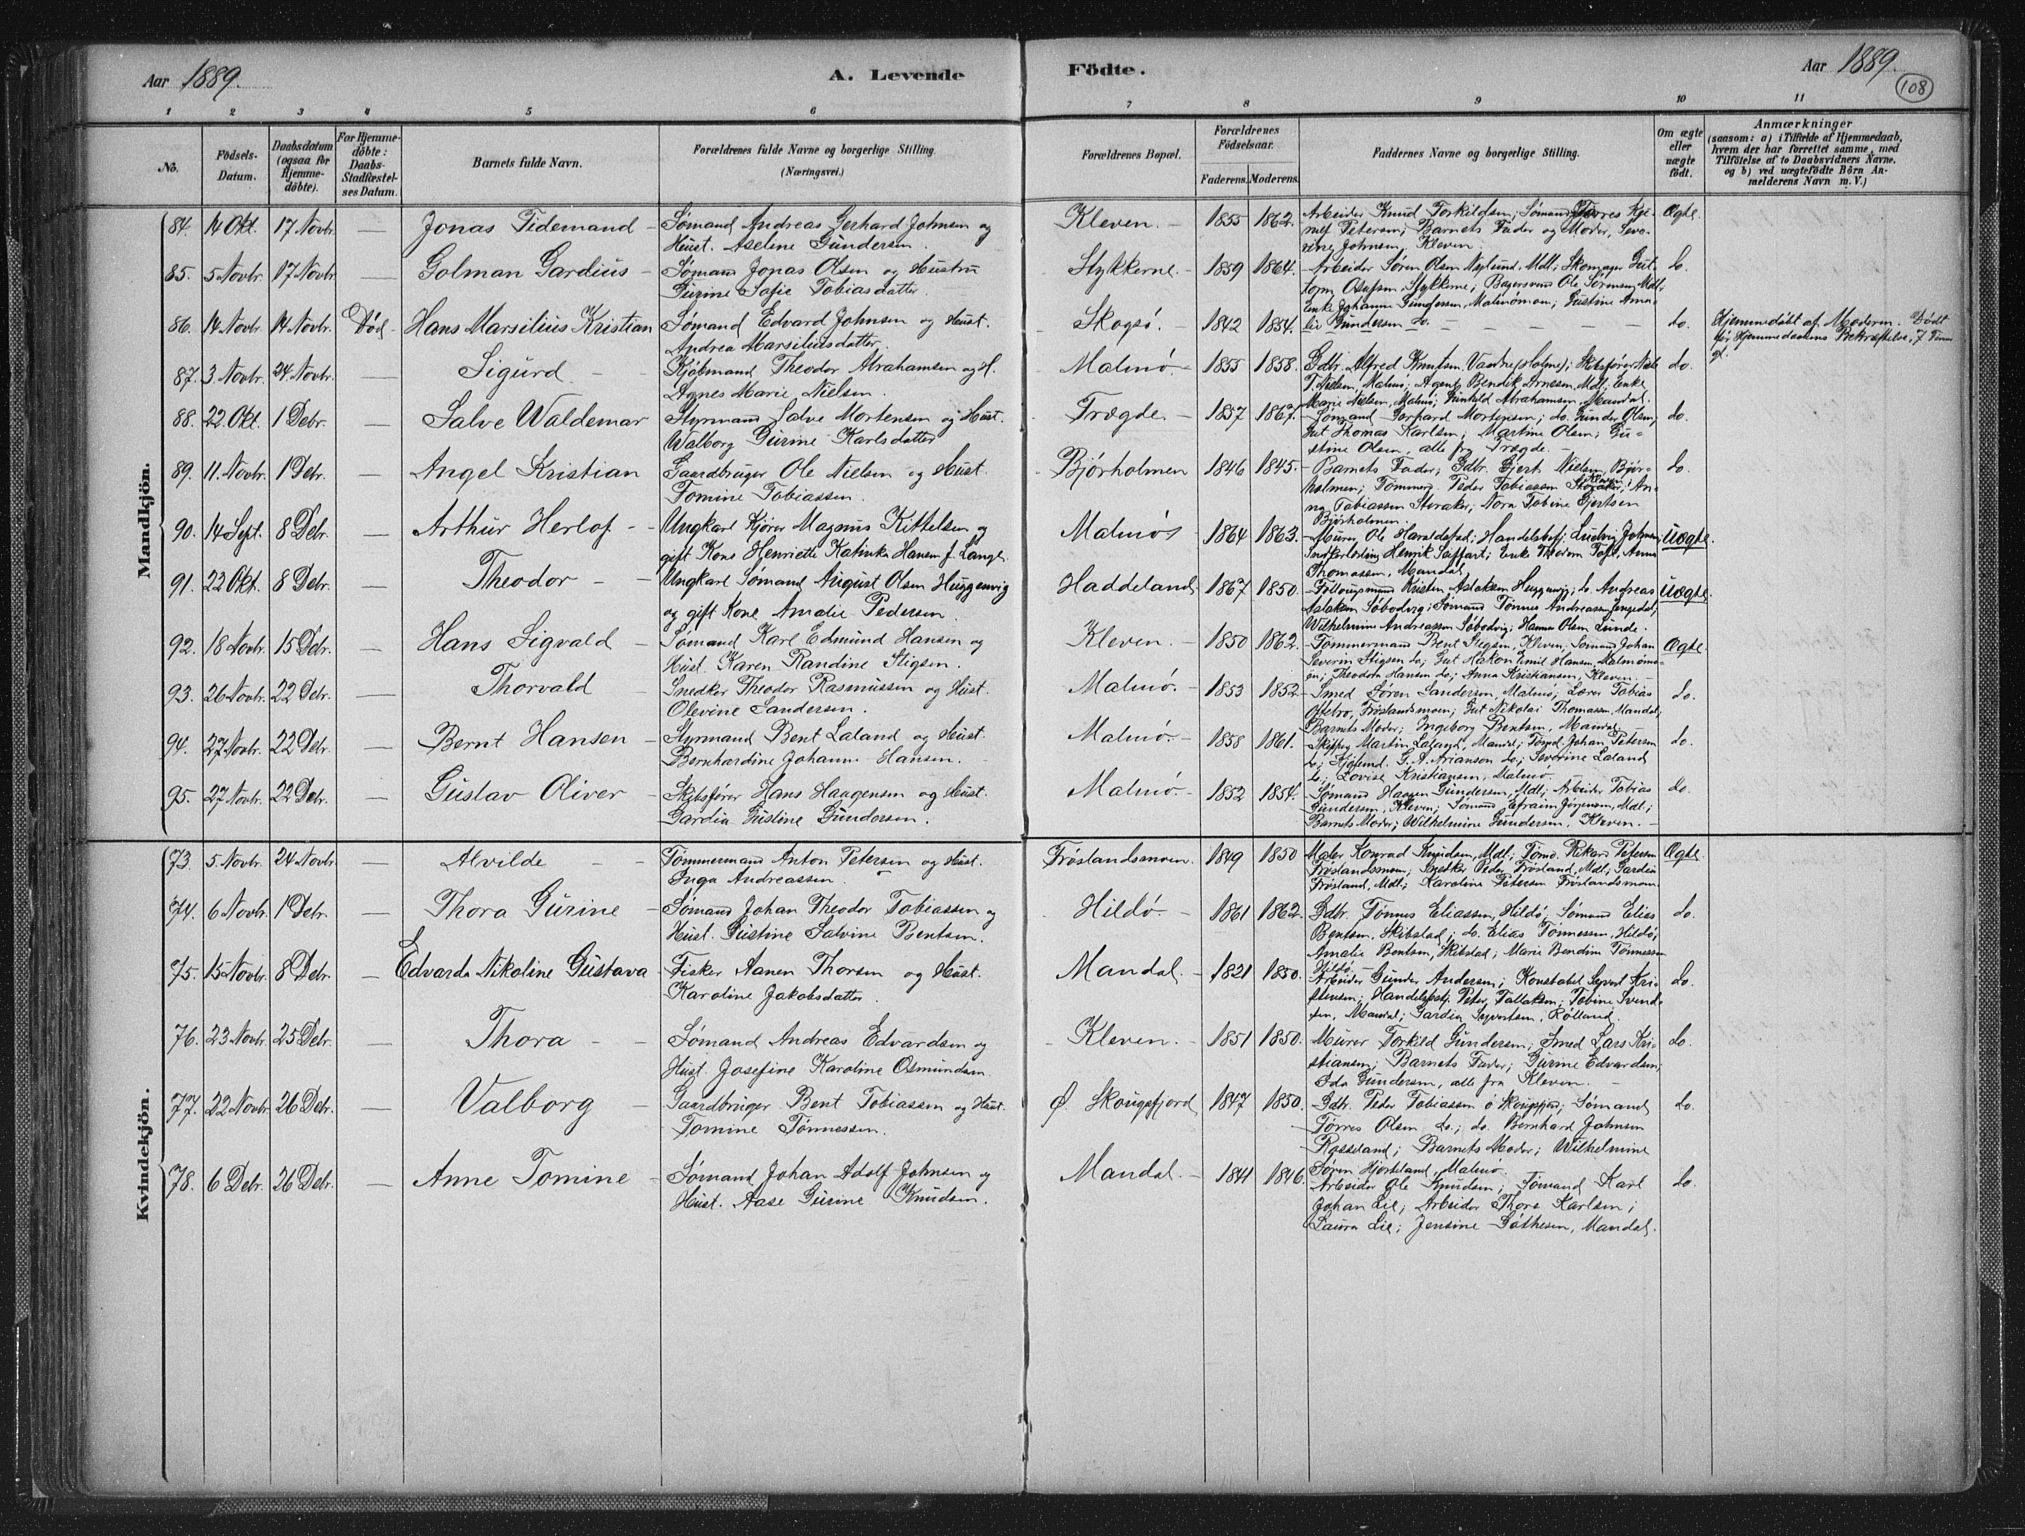 Aar 1889.
A. Levende Födte.
Aar 1889.
108
1 2 3 4 5 6 7 8 9 10 11
No.
Födsels-Datum.
Daabsdatum (ogsaa for Hjemmedöbte).
For Hjemmedöbte: Daabs-Stadfæstelses Datum.
Barnets fulde Navn.
Forældrenes fulde Navne og borgerlige Stilling.
(Næringsvei.)
Forældrenes Bopæl.
Forældrenes Födselsaar.
Faderens. Moderens.
Faddernes Navne og borgerlige Stilling.
Om ægte eller uægte födt.
Anmærkninger
(saasom: a) i Tilfælde af Hjemmedaab, hvem der har forrettet samme, med Tilföielse af to Daabsvidners Navne. og b) ved uægtefödte Börn Anmelderens Navn m. V.)
Mandkjön.
84. 14 Okt. 17 Novbr. — Jonas Tidemand — Sømand Andreas Gerhard Johnsen og Hust. Aselene Gundersen. Kleven. — 1855 1862. Arbeider Knud Torkildsen; Sømand Petersen; Barnets Fader og Moder, Severine Johnsen, Kleven. Ægte.
85. 5 Novbr. 17 Novbr. — Golman Gardius — Sømand Jonas Olsen og Hustru Gurine Sofie Tobiasdatter. Stykkerne. — 1859 1864. Arbeider Søren Olsen Nylund, Mdl; Olafsen, Stykkerne; Ole Sørensen, Mdl; Enke Johanne Gundersen, Malmömoen; Gustine Amalie Gundersen do. do.
86. 14 Novbr. 14 Novbr. Död. Hans Marsilius Kristian Sømand Edvard Johnsen og Hust. Andrea Marsiliusdatter. Skogsö. — 1842 1854. do. Hjemmedöbt af Moderen. Dödt för Hjemmedaabens Bekræftelse, 7 Timer gl.
87. 3 Novbr. 24 Novbr. Sigurd — Kjöbmand Theodor Abrahamsen og H. Agnes Marie Nielsen. Malmö. — 1855 1858. Gdbr. Alfred Knutsen Vaadne (Holme); Skibsförer T. Nielsen, Malmö; Agent Bendik Arnesen, Mdl; Enke Marie Nielsen, Malmö; Gunhild Abrahamsen, Mandal. do.
88. 22 Okt. 1 Debr. — Salve Waldemar Styrmand Salve Mortensen og Hust. Walborg Gurine Karlsdatter Trægde. — 1857 1867. Sømand Gerhard Mortensen; do. Gunder Olsen; Gut Thomas Karlsen; Martine Olsen; Gustine Olsen, alle fra Trægde. — do.
89. 11. Novbr. 1 Debr. — Angel Kristian Gaardbruger Ole Nielsen og Hust. Tomine Tobiassen. Bjørholmen 1846 1845. Barnets Fader; Gdbr. Gjert Nielsen, Bjørholmen; Tömmerm. Peder Tobiassen Kleven; Anna Tobiassen Storaker; Nora Tobine Gjertsen Bjørholmen. do.
90. 14 Sept. 8 Debr. — Arthur Herlof — Ungkarl Kjörer Magnus Kittelsen og gift Kone Henriette Katinka Hansen f. Lange. Malmö 1864 1863. Murer Ole Haraldstad; Handelsbetj. Ludvig Johnsen; Snedkerlærling Henrik Seiffart; Enke Thedora Toft, Anna Thomassen, Mandal. Uægte.
91. 22 Okt. 8 Debr. — Theodor — Ungkarl Sømand August Olsen Huggenvig og gift Kone Amalie Pedersen. Haddeland 1867 1850. Föderaadsmand Kristen Aslaksen Huggenvig; do. Andreas Aslaksen Söbodvig; Sømand Tönnes Andreassen; Wilhelmine Andreassen Söbodvig; Hanna Olsen Lunde. Uægte.
92. 18 Novbr. 15 Debr. — Hans Sigvald — Sømand Karl Edmund Hansen og Hust. Karen Randine Stigsen. Kleven. — 1850 1862. Tömmermand Bent Stigsen, Kleven; Sømand Johan Severin Stigsen do; Gut Hakon Emil Hansen, Malmömoen; Theodora Hansen do; Anna Kristiansen, Kleven. — Ægte.
93. 26 Novbr. 22 Debr. — Thorvald Snedker Theodor Rasmussen og Hust. Olevine Sandersen. Malmö. — 1853 1852. Smed Søren Sandersen, Malmö; Lærer Tobias Ottebro, Fröslandsmoen; Gut Nikolai Thomassen, Mandal; Barnets Moder; Ingeborg Bentsen, Mandal. do.
94. 27 Novbr. 22 Debr. — Bernt Hansen — Styrmand Bent Laland og Hust. Bernhardine Johanne Hansen. Malmö. — 1858 1861. Skipper Martin Laland, Mandal; Tömd. Johan Petersen do; Kjöbmd. G. A. Arianson do; Severine Laland do; Lovise Kristiansen, Malmö. do.
95. 27 Novbr. 22 Debr. — Gustav Oliver — Skibsförer Hans Haagensen og Hust. Gardia Gustine Gundersen. Malmö. — 1852 1854. Sømand Haagen Gundersen, Mdl; Arbeider Tobias Gundersen, Kleven; Sømand Efraim Jörgensen, Mdl; Barnets Moder; Wilhelmine Gundersen, Kleven. — do.
Kvindekjön.
73. 5 Novbr. 24 Novbr. — Alvilde — Tömmermand Anton Petersen og Hust. Inga Andreassen. Fröslandsmoen. 1849 1850 Maler Konrad Knudsen, Mdl; Tömd. Rikard Petersen Fröslandsmoen; Snedker Peder Frösland, Mdl; Gardia Frösland, Mdl; Karoline Petersen Fröslandsmoen. Ægte.
74. 6 Novbr. 1 Debr. — Thora Gurine — Sømand Johan Theodor Tobiassen og Hust. Gustine Salvine Bentsen. Hildö. — 1861 1862. Gdbr. Tönnes Eliassen, Hildö, Sømand Elias Bentsen, Skibstad; do. Elias Tönnessen, Hildö; Amalie Bentsen, Skibstad; Marie Bendine Tönnessen Hildö. do.
75. 15 Novbr. 8 Debr. — Edvarda Nikoline Gustava Fisker Aanen Thorsen og Hust. Karoline Jakobsdatter. Mandal. — 1821 1850. Arbeider Gunder Andersen; Konstabel Syvert Kristensen; Handelsbetj. Peter Tallaksen; Tobine Svendsen, Mandal; Gardia Syvertsen, Rölland. do.
76. 23 Novbr. 25 Debr. — Thora — Sømand Andreas Edvardsen og Hust. Josefine Karoline Osmundsen. Kleven. — 1851 1850. Murer Torkild Gundersen; Smed Lars Kristiansen; Barnets Fader; Gurine Edvardsen; Ida Gundersen, alle fra Kleven. — do.
77. 22 Novbr. 26 Debr. — Valborg — Gaardbruger Bent Tobiassen og Hust. Tomine Tönnessen. Ø. Skougsfjord 1847 1850. Gdbr. Peder Tobiassen ö Skougsfjord; Sømand Torres Olsen do.; do. Bernhard Johnsen Rosseland; Barnets Moder; Wilhelmine Søren Hjorteland, Malmö. do.
78. 6 Debr. 26 Debr. — Anne Tomine — Sømand Johan Adolf Johnsen og Hust. Aase Gurine Knudsen. Mandal. — 1844 1846. Arbeider Ole Knudsen; Sømand Karl Johan Lie; Arbeider Thore Karlsen; Laura Lie; Jensine Løthesen, Mandal. do.